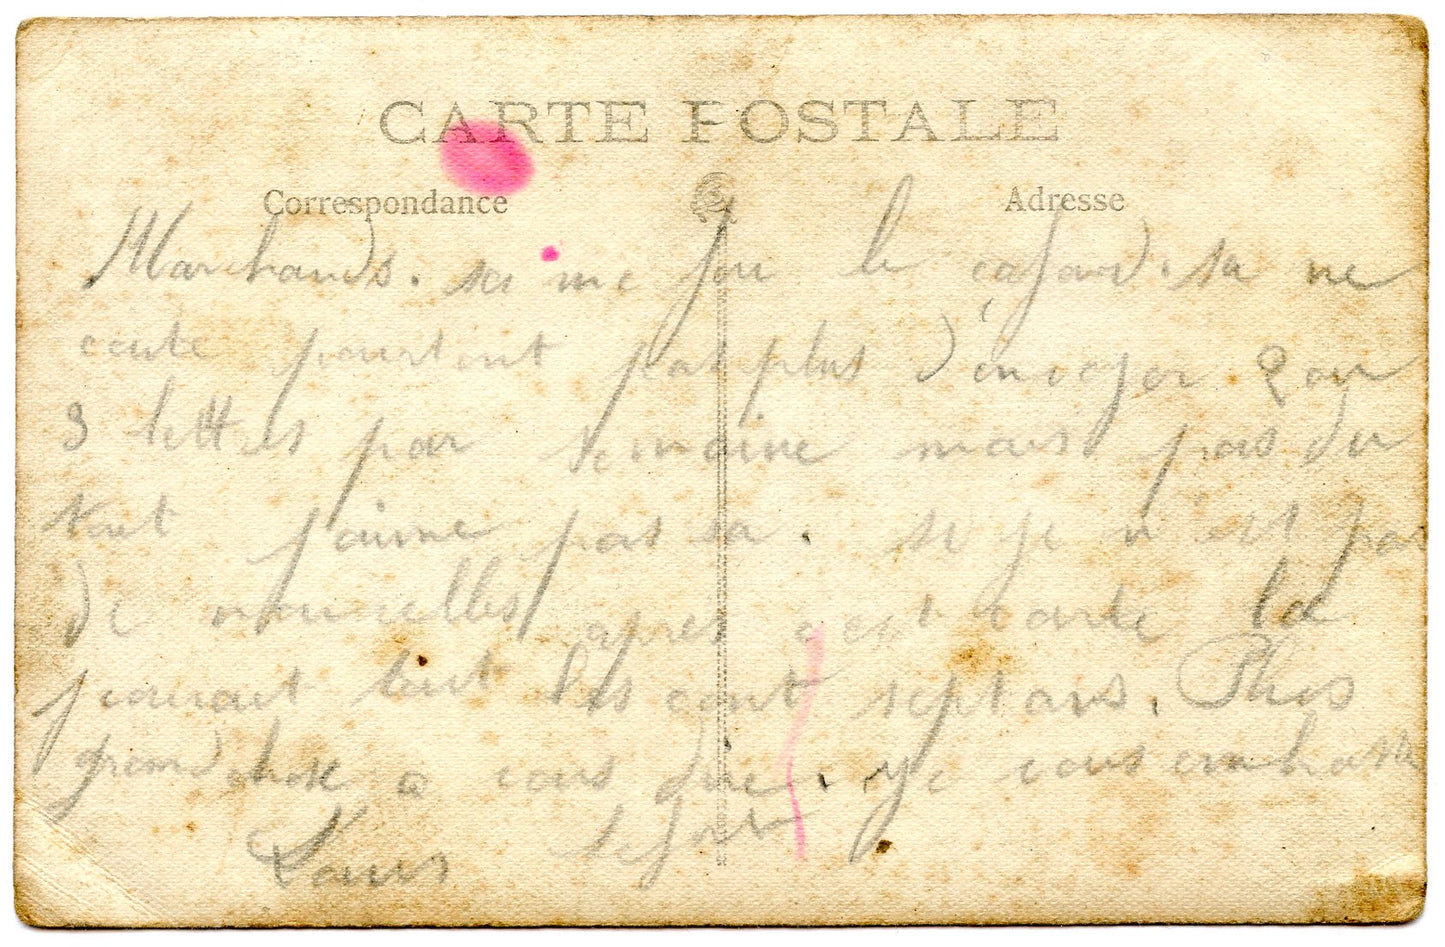 CARTE POSTALE
Correspondance
Adresse
Marchands. sa me fou le cafard. sa ne
coute pourtout pas plus d'envoyer 2 ou
3 lettres par semaine mais pas du
tout j'aime pas sa. si je n'est pas
de nouvelles apres c'est carte la
pourout tout les cont septans. Plus
grand chose a vous dire. je vous embrasse
Louis Lefort